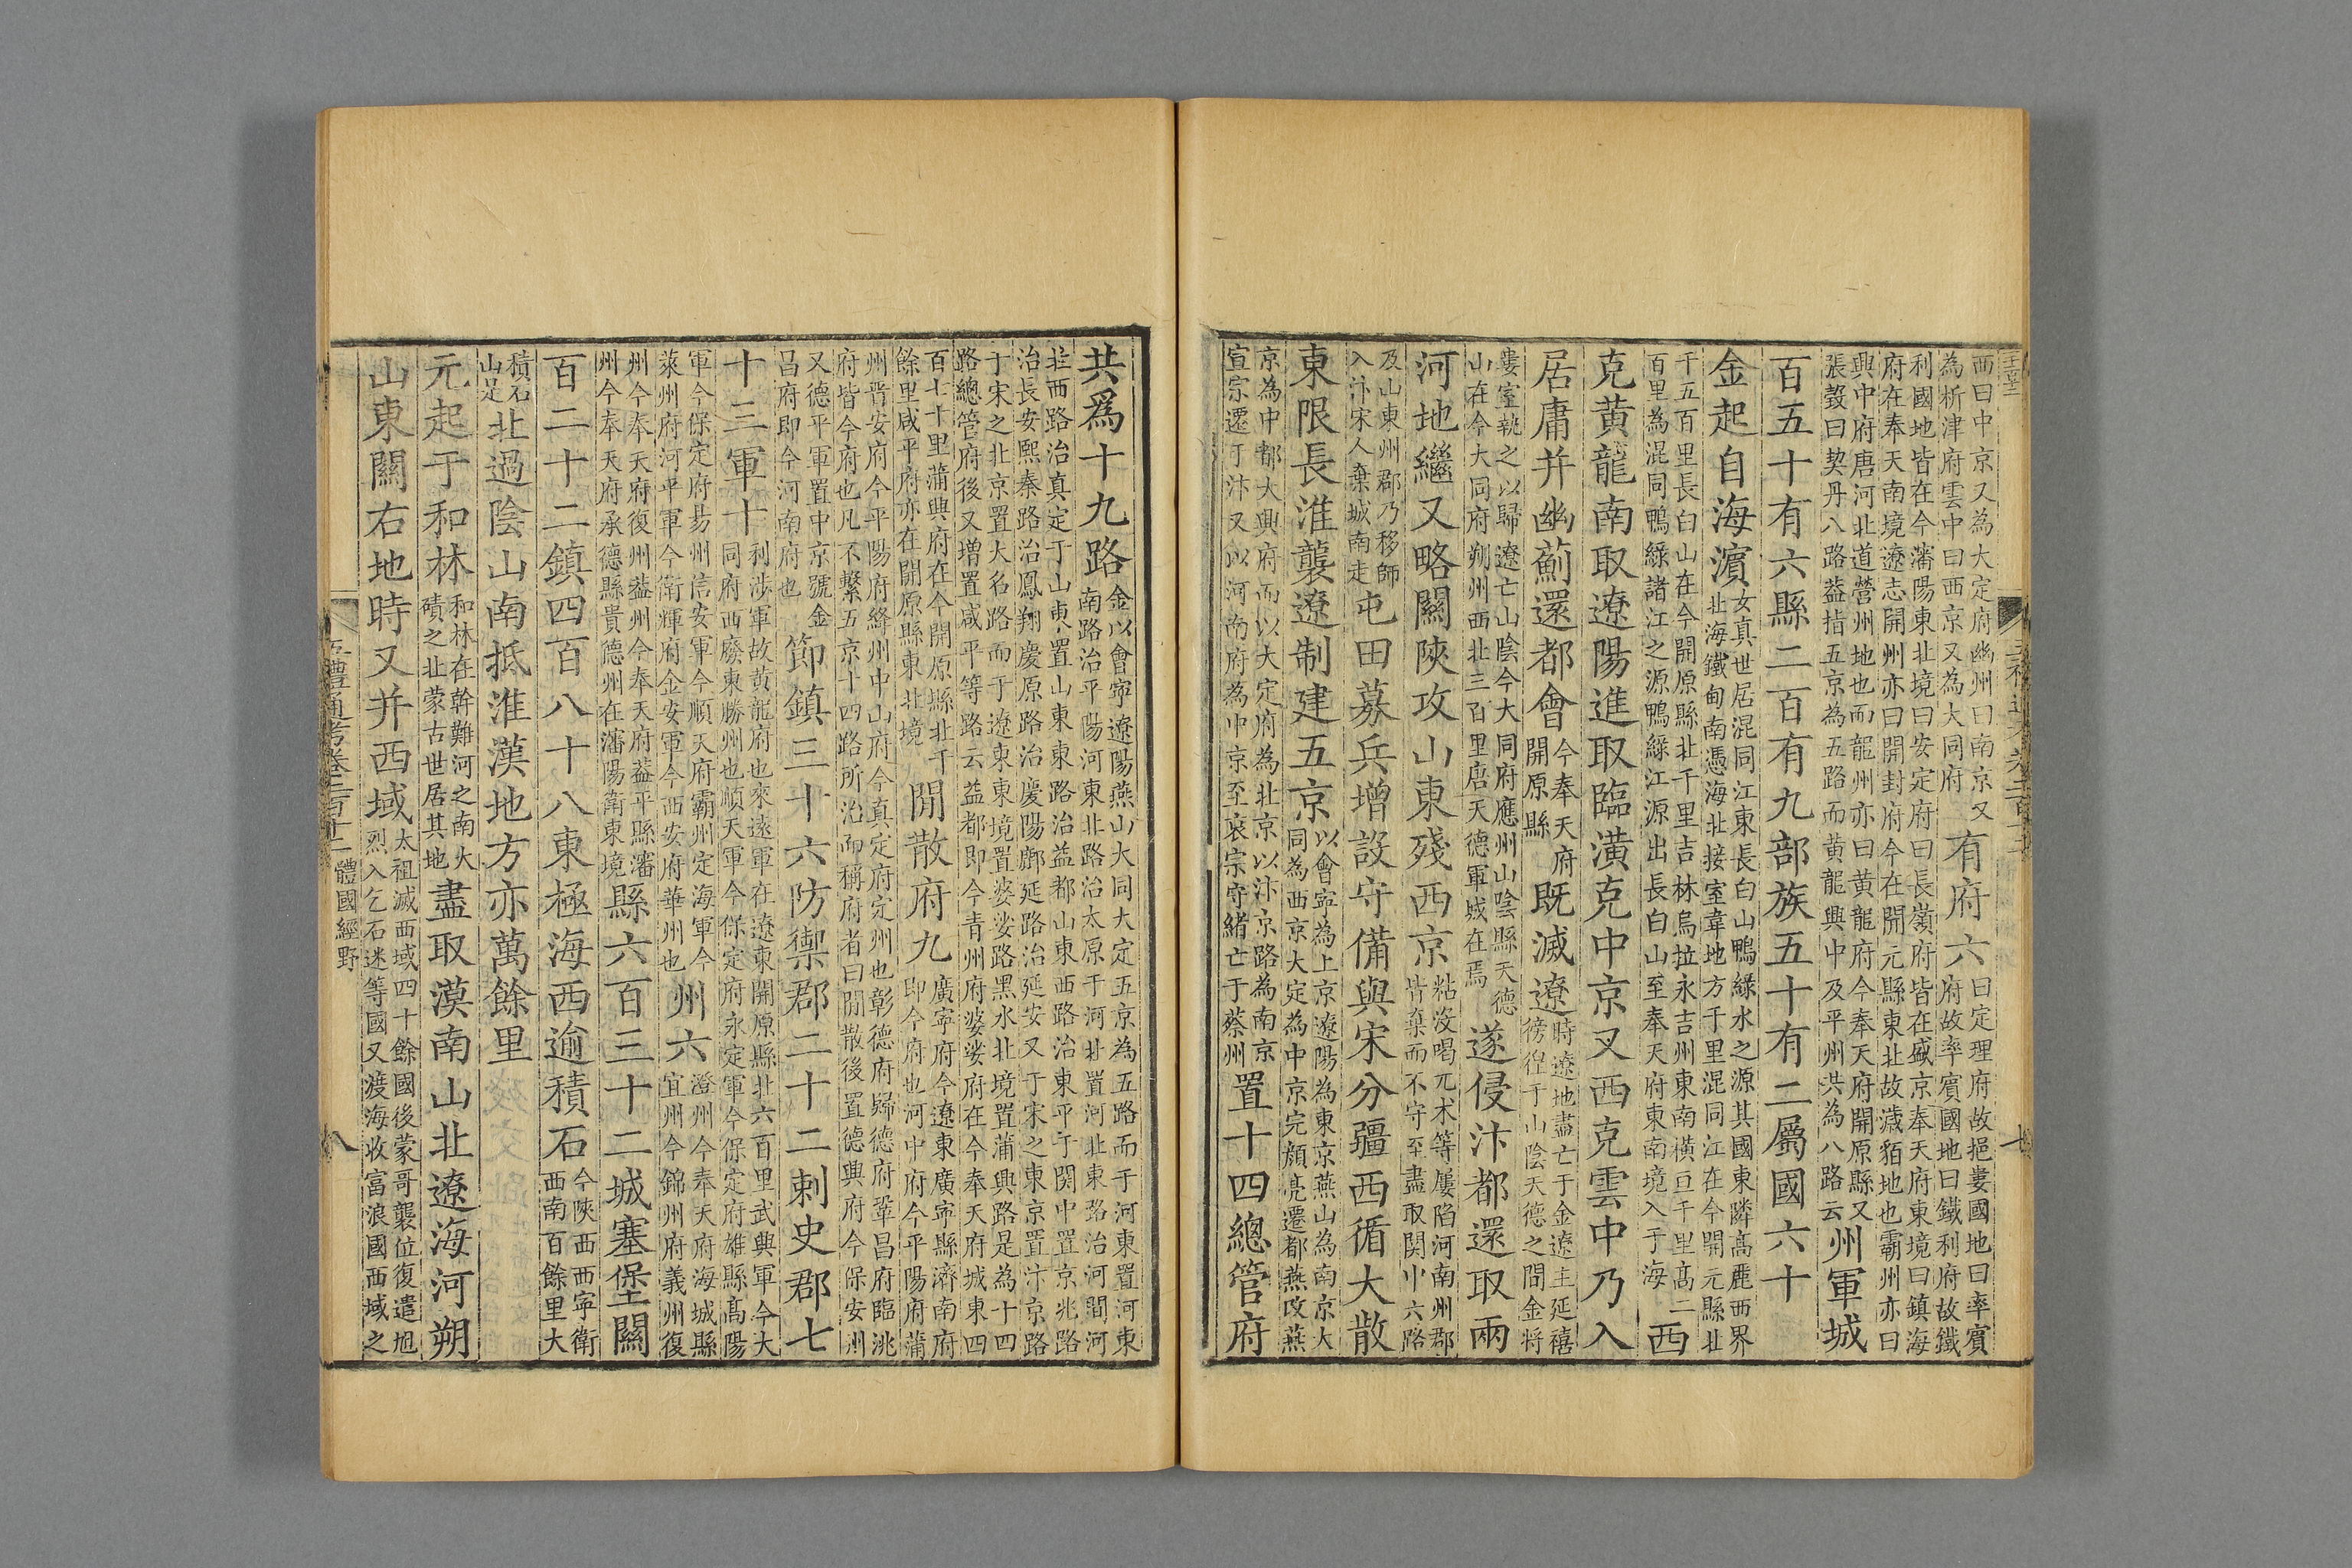 西曰中京又為大定府幽州曰南京又
為析津府雲中曰西京又為大同府
有府六
曰定理府故挹婁國地曰率賓
府故率賓國地曰鐵利府故鐵
利國地皆在今瀋陽東北境曰安定府曰長嶺府皆在盛京奉天府東境曰鎮海
府在奉天南境遼志開州亦曰開封府今在開元縣東北故濊貊地也霸州亦曰
興中府唐河北道營州地也而龍州亦曰黃龍府今奉天府開原縣又
張㲄曰契丹八路蓋指五京為五路而黃龍興中及平州共為八路云
州軍城
百五十有六縣二百有九部族五十有二屬國六十
金起自海濱
女真世居混同江東長白山鴨綠水之源其國東隣高麗西界
北海鐵甸南憑海北接室韋地方千里混同江在今開元縣北
千五百里長白山在今開原縣北千里吉林烏拉永吉州東南橫亘千里高二
百里為混同鴨綠諸江之源鴨綠江源出長白山至奉天府東南境入于海
西
克黃龍南取遼陽進取臨潢克中京又西克雲中乃入
居庸并幽薊還都會
今奉天府
開原縣
既滅遼
時遼地盡亡于金遼主延禧
徬徨于山陰天德之間金將
婁室執之以歸遼亡山陰今大同府應州山陰縣天德
山在今大同府朔州西北三百里唐天德軍城在焉
遂侵汴都還取兩
河地繼又略關陝攻山東殘西京
粘没喝兀术等屢陷河南州郡
皆棄而不守至盡取関中六路
及山東州郡乃移師
入汴宋人棄城南走
屯田募兵增設守備與宋分疆西循大散
東限長淮襲遼制建五京
以會寧為上京遼陽為東京燕山為南京大
同為西京大定為中京完顏亮遷都燕改燕
京為中都大興府而以大定府為北京以汴京路為南京
宣宗遷于汴又以河南府為中京至哀宗守緒亡于蔡州
置十四總管府
共爲十九路
金以會寧遼陽燕山大同大定五京為五路而于河東置河東
南路治平陽河東北路治太原于河北置河北東路治河間河
北西路治真定于山東置山東東路治益都山東西路治東平于関中置京兆路
治長安熙秦路治鳳翔慶原路治慶陽鄜延路治延安又于宋之東京置汴京路
于宋之北京置大名路而于遼東東境置婆娑路黑水北境置蒲興路是為十四
路總管府後又增置咸平等路云益都即今青州府婆娑府在今奉天府城東四
百七十里蒲興府在今開原縣北千
餘里咸平府亦在開原縣東北境
閒散府九
廣寧府今遼東廣寧縣濟南府
即今府也河中府今平陽府蒲
州晋安府今平陽府絳州中山府今真定府定州也彰德府歸德府鞏昌府臨洮
府皆今府也凡不繫五京十四路所治而稱府者曰閒散後置德興府今保安州
又德平軍置中京號金
昌府即今河南府也
節鎮三十六防禦郡二十二刺史郡七
十三軍十
利涉軍故黃龍府也來遠軍在遼東開原縣北六百里武興軍今大
同府西廢東勝州也順天軍今保定府永定軍今保定府雄縣高陽
軍今保定府易州信安軍今順天府霸州定海軍今
萊州府河平軍今衛輝府金安軍今西安府華州也
州六
澄州今奉天府海城縣
宜州今錦州府義州復
州今奉天府復州蓋州今奉天府蓋平縣瀋
州今奉天府承德縣貴德州在瀋陽衛東境
縣六百三十二城塞堡關
百二十二鎮四百八十八東極海西逾積石
今陝西西寧衛
西南百餘里大
積石
山足
北過陰山南抵淮漢地方亦萬餘里
元起于和林
和林在幹難河之南大
磧之北蒙古世居其地
盡取漠南山北遼海河朔
山東關右地時又并西域
太祖滅西域四十餘國後蒙哥襲位復遣旭
烈入乞石迷等國又渡海收富浪國西域之
五禮通考卷二百十二 體國經野
八